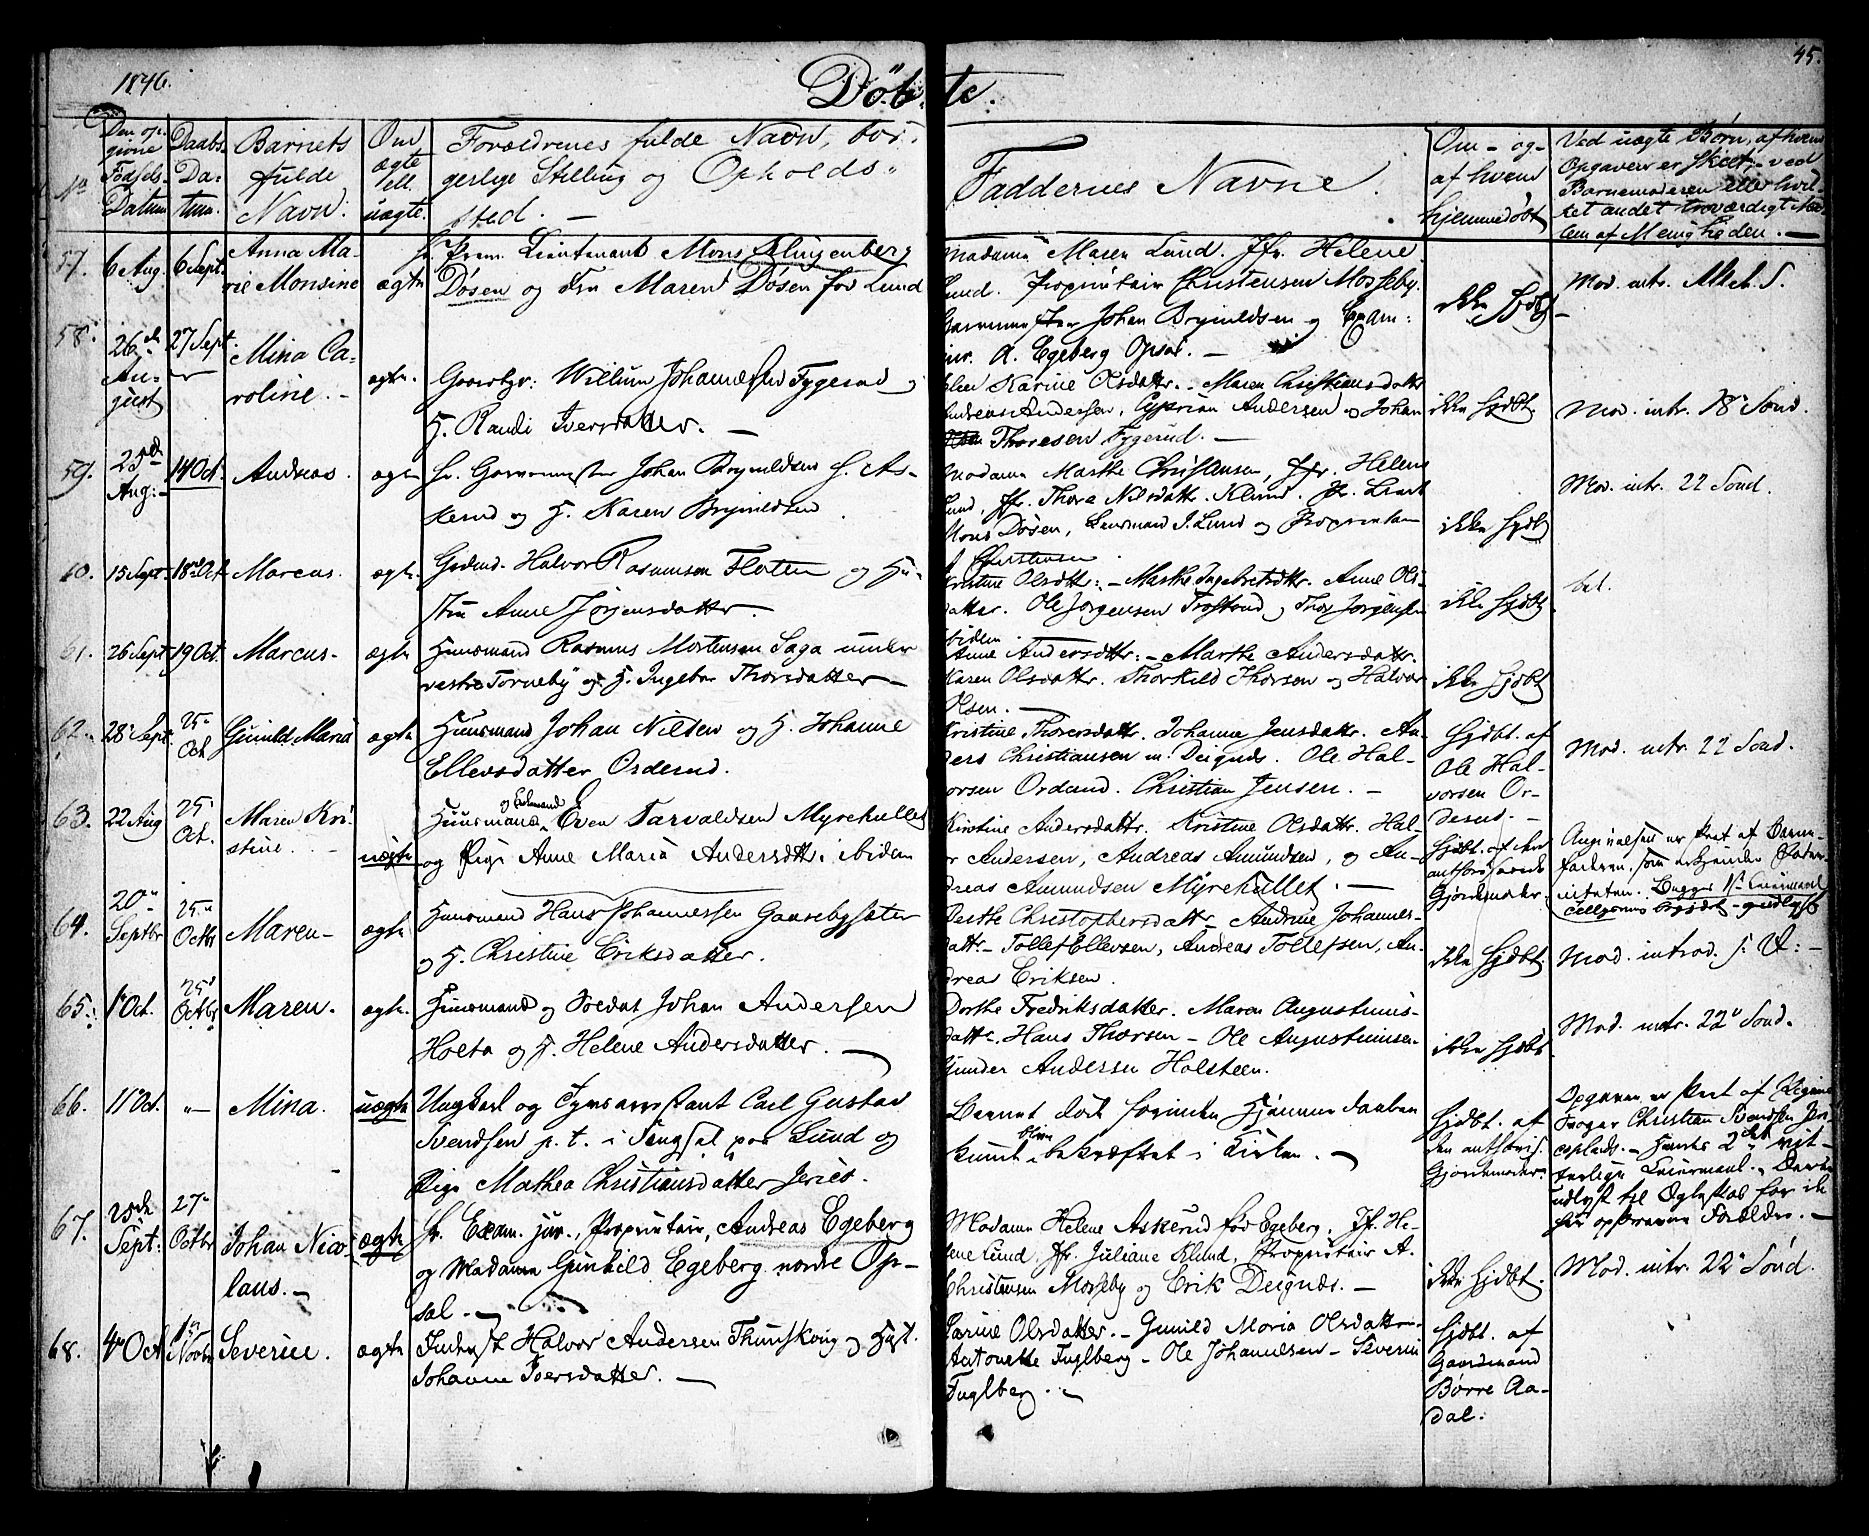 1846.
45.
Döbte.
No
Den op-
givne
Födsels
Datum
Daabs
Da-
tum.
Barnets
fulde
Navn.
Om
ægte
ell.
uægte.
Forældrenes fulde Navn, bor-
gerlige Stilling og Opholds-
sted. —
Faddernes Navne.
Om - og -
af hvem
hjemmedöbt
Ved uægte Börn, af hvem
Opgaven er skeet, - ved
Barnemoderen eller hvil-
ket andet troværdigt Med-
lem af Menigheden. —
57.
6 Aug.
6 Sept.
Anna Ma-
rie Monsine
ægte
Hr. Prem. Lieutenant Mons Klingenberg
Dösen og Fru Maren Dösen för Lund
Madame Maren Lund. Jfr. Helene
Lund. Proprietair Christensen Mosseby.
Johan Brynildsen og Exam:
jur. A. Egeberg Opsal. —
ikke Hjdbt
Mod. intr. Mich. S.
58.
26de
Au-
gust
27 Sept.
Mina Ca-
roline. -
ægte.
Gaardbr: Willum Johannessen Tygerud og
H. Randi Iversdatter. —
Karine Olsdattr. - Maren Christiansdatt
Andreas Andersen, Cyprian Andersen og Johan
Thoresen Tygerud. —
ikke Hjdbt.
Mod. intr. 18 Sönd.
59.
25de
Aug: -
14 Oct.
Andreas.
ægte
Hr. Johan Brynildsen H. As-
kerud og H. Karen Brynildsen
Madame Marthe Christensen, Jfr. Helene
Lund, Jfr. Thora Nilsdattr. Klund. Pr. Lieut
Mons Dösen, Lensmand J. Lund og Proprietair
Christensen.
ikke Hjdbt
Mod. intr. 22 Sönd.
60.
15 Sept.
18de Oct
Marcus.
ægte
Gdmd. Halvor Rasmusen Floten og Hu-
stru Anne Jörgensdatter. —
Kristine Olsdttr: - Marthe Ingebretsdttr. Anne Ols-
datter. Ole Jörgensen Trostrud og Thor Jörgensen
ibidem.
ikke Hjdbt
61.
26 Sept
19 Oct.
Marcus -
ægte
Huusmand Rasmus Mortensen Saga under
vestre Torneby og H. Ingebor Thorsdatter —
Anne Andersdttr: - Marthe Andersdattr.
Karen Olsdattr. Thorkild Thorsen og Halvor
Olsen. —
ikke Hjdbt
62.
28 Sept
25
Oct.
Gunild Maria
ægte
Huusmand Johan Nilsen og H. Johanne
Ellevsdatter Orderud.
Kristine Thoresdattr. Johanne Jensdattr. An-
ders Christiansen m. Deignes. Ole Hal-
vorsen Orderud. Christian Jensen. -
Hjdbt. af
Ole Hal-
vorsen Or-
derud. -
Mod. intr. 22 Sönd.
63.
22 Aug
25
Oct.
Maren Kri-
stine.
uægte
Huusmand og Enkemand Even Tarvaldsen Myrehullet
og Pige Anne Maria Andersdttr. ibidem
Kirstine Andersdattr. Kristine Olsdattr. Hal-
vor Andersen, Andreas Amundsen, og An-
dreas Amundsen Myrehullet. —
Hjdbt. af den
authoriserede
Gjordemoder.
Angivelsen er skeet af Barne-
faderen, som erkjender Pater-
niteten. Begges 1ste Leiermaal
64.
20
Septbr
25
Octbr
Maren -
ægte
Huusmand Hans Johannessen Gaasebysæter
og H. Christine Eriksdatter.
Berthe Christophersdattr - Andrine Johannes-
dattr - Tollef Ellevsen, Andreas Tollefsen, An-
dreas Eriksen.
ikke Hjdbt.
Mod. introd. s. D: -
65.
1 Oct.
25
Octbr
Maren.
ægte.
Huusmand og Soldat Johan Andersen
Holta og H. Helene Andersdatter. —
Dorthe Fredriksdatter. Maren Augustinus-
dattr. Hans Thorsen - Ole Augustinusen -
Gunder Andersen Holsteen.
ikke Hjdbt
Mod. intr. 22 Sönd.
66.
11 Oct.
" -
Mina.
uægte
Ungkarl og Carl Gustav
Svendsen p. t. i Lund og
Pige Mathea Christiansdatter Jerico.
Barnet död forinden Hjemmedaaben
kunde blive bekræftet i Kirken. -
Hjdbt. af
den authoris.
Gjordemoder
Opgaven er skeet af Pigens
Svoger Christian Svendsen Jeri-
coplads. - Hendes 2det vit-
terlige Leiermaal. - Deres
udlyst til Ægteskab for de
her opskrevne Forældre. -
67.
25de
Sept:
27
Octbr
Johan Nico-
laus. -
ægte
Hr. Exam. jur., Proprietair, Andreas Egeberg
og Madame Gunhild Egeberg nordre Op-
sal. -
Madame Helene Askerud för Egeberg. Jf. He-
lene Lund, Jfr. Juliane Klund, Proprietair A.
Christensen Mosseby og Erik Deignes. -
ikke Hjdbt.
Mod. intr. 22 Sönd.
68.
4 Oct
1
Novbr
Severine.
ægte
Inderst Halvor Andersen Thunskoug og Hust.
Johanne Iversdatter. —
Karine Olsdatter. - Gunild Maria Olsdatter -
Antonette Fuglberg - Ole Johannesen - Severin
Fuglberg. -
Hjdbt. af
Gaardmand
Börre Aa-
dal.